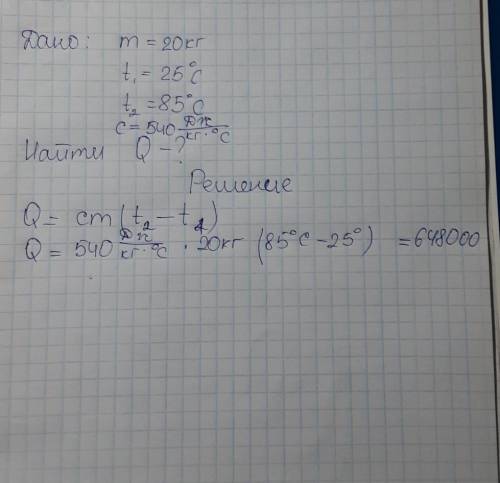 Дано: m = 20кг
t₁ = 25°C
t₂ = 85°C
c = 540 Дж/кг·°C
Найти Q - ?
Решение
Q = cm(t₂ - t₁)
Q = 540 Дж/кг·°C · 20кг (85°C - 25°) = 648000